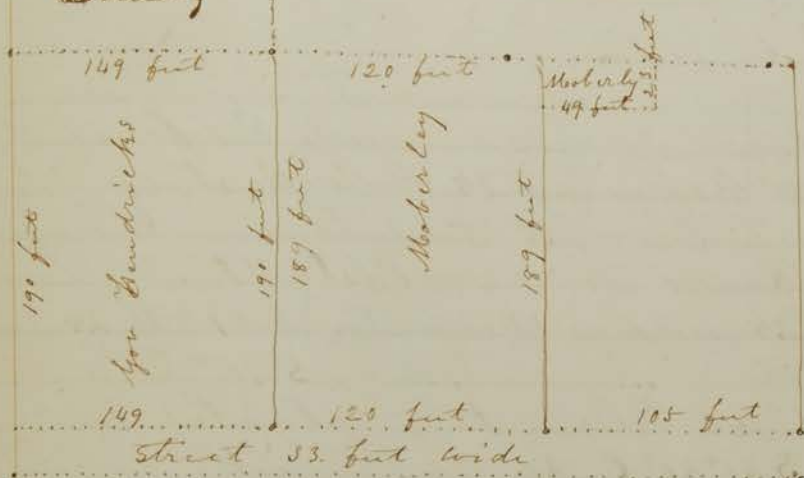 149 feet
120 feet
Moberly
49 feet
23 feet
190 feet
Gov Hendricks
190 feet
189 feet
Moberley
189 feet
149
120 feet
105 feet
Street 33 feet wide